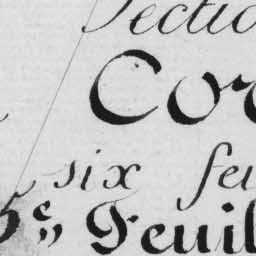 Sectio
Cor
six feu
5e. Feuil